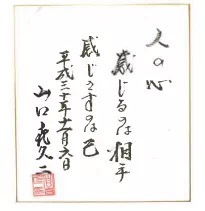 人の心
感じるのは相手
感じさすのは己
平成三十年十一月六日
山口